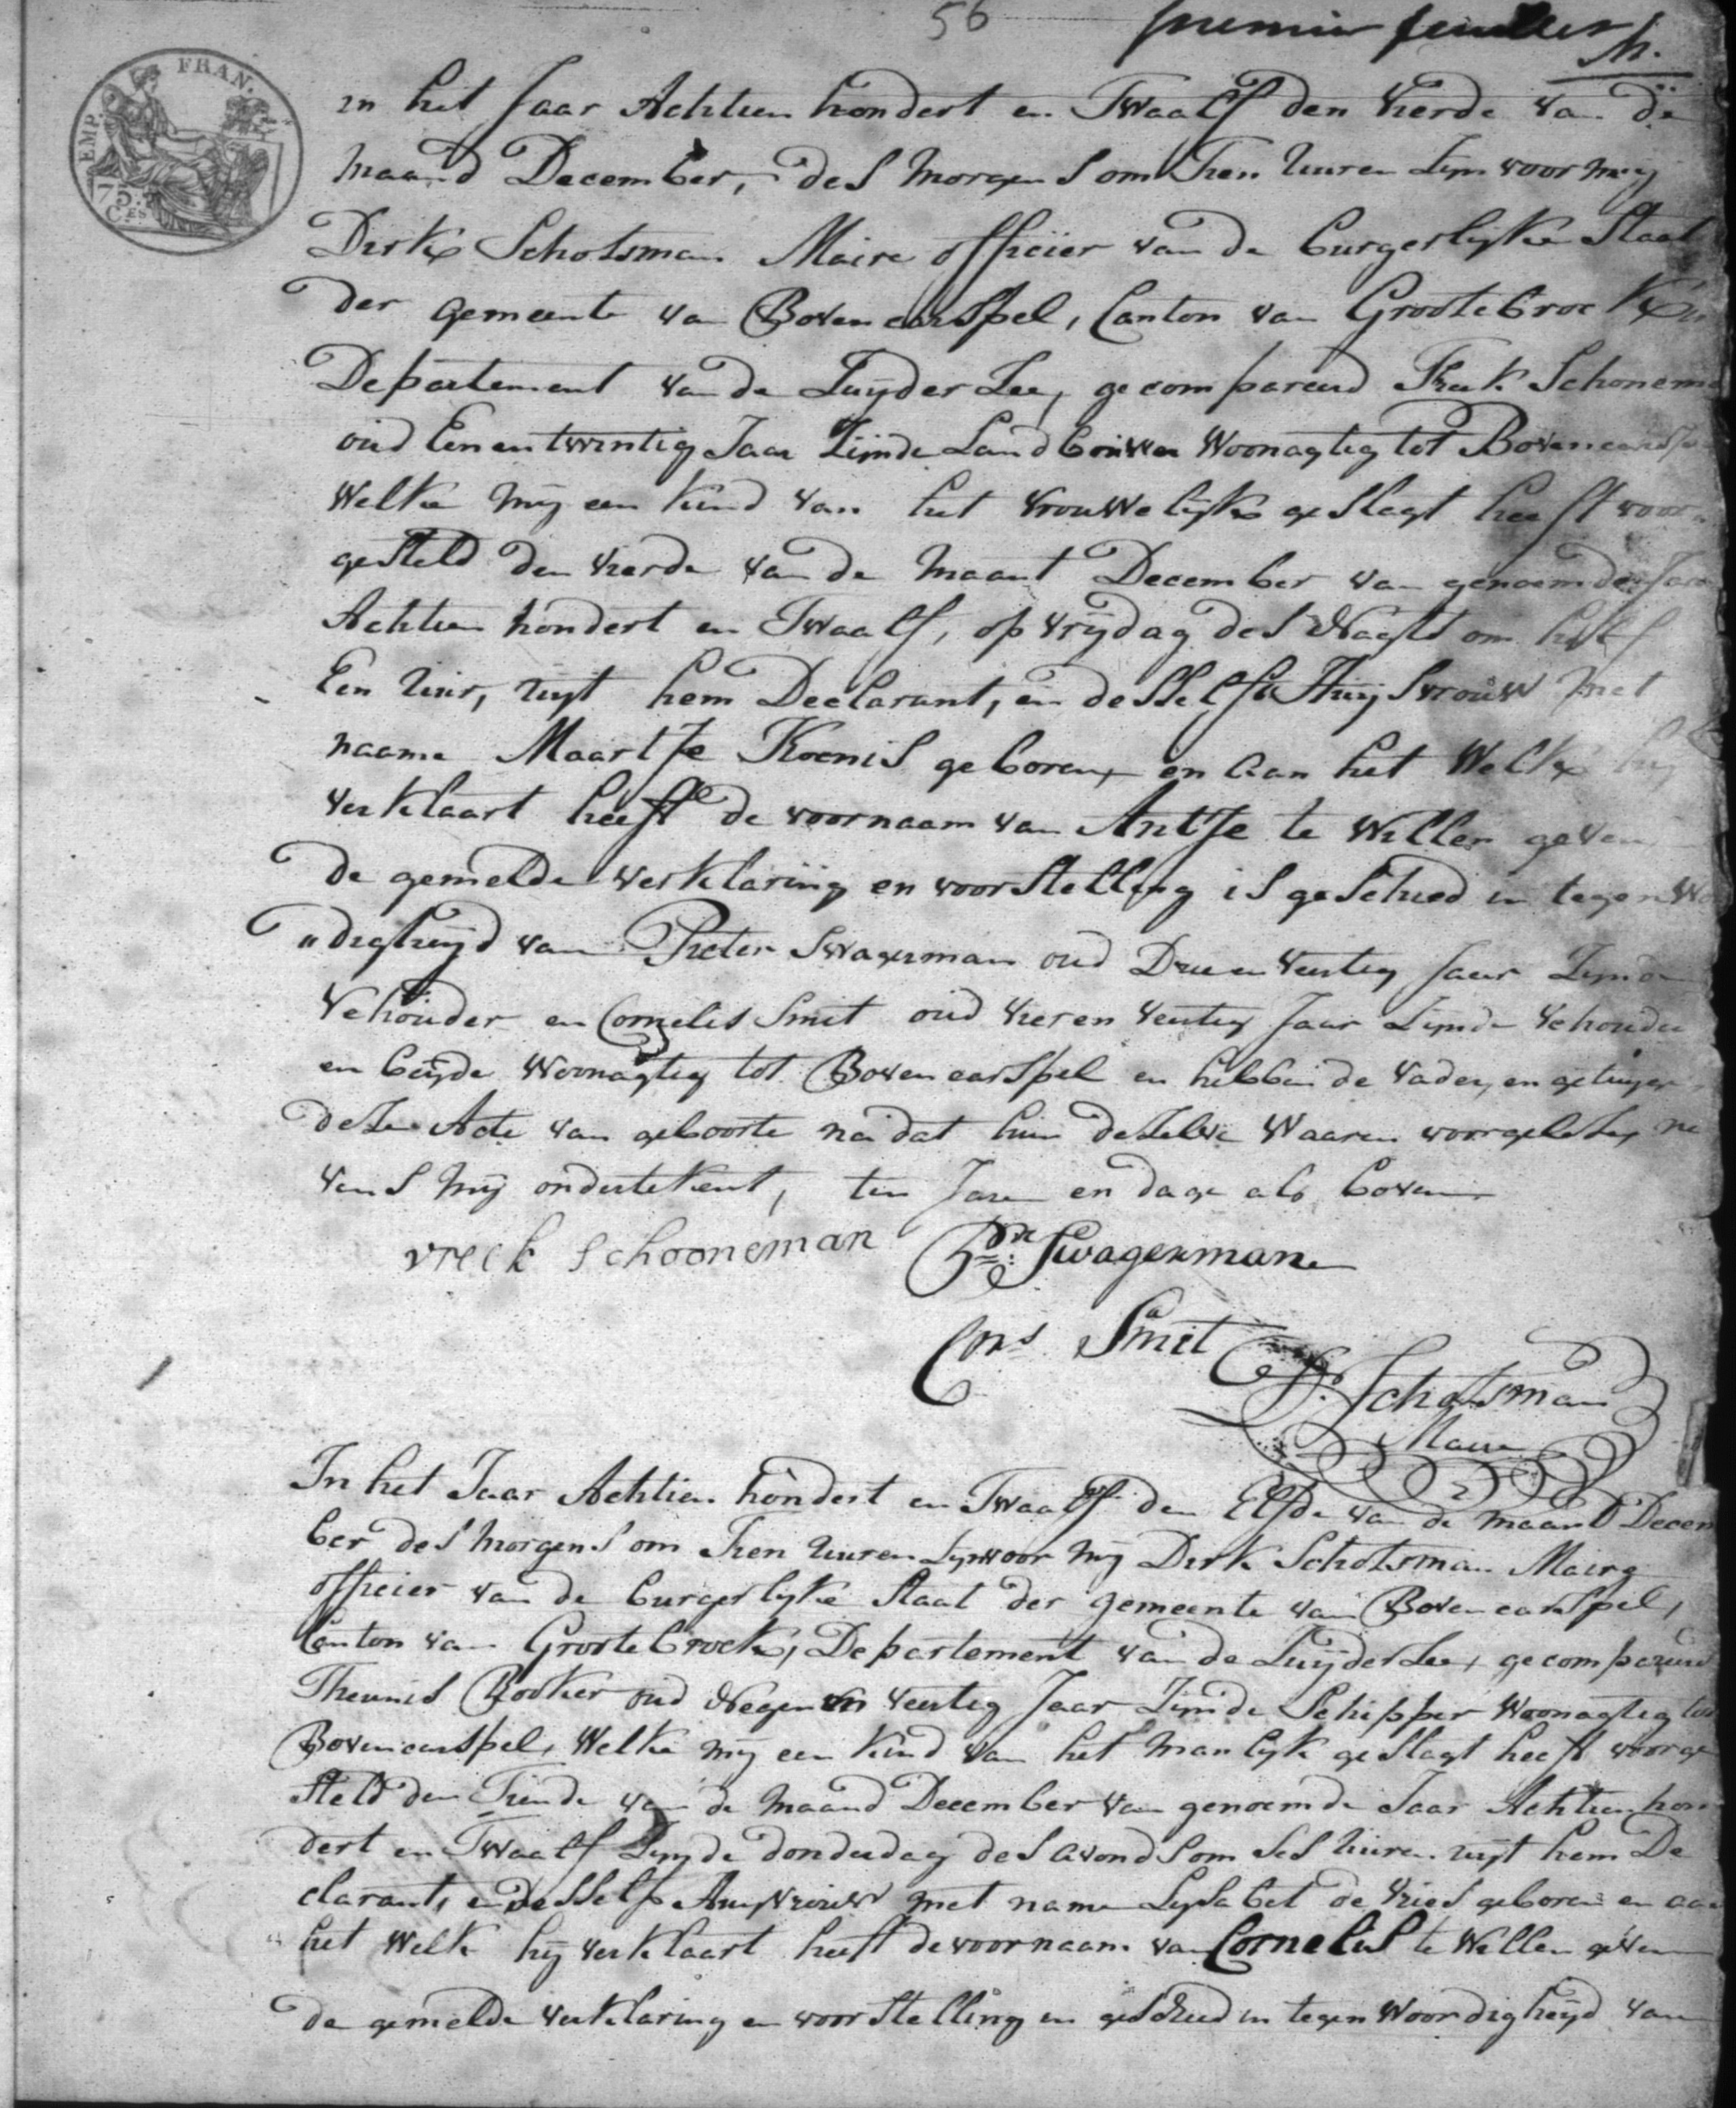 56 premier feuillet
EMP. FRAN.
75 C.ES
in het Jaar Achtien hondert en Twaalf den Vierde van de
maand December, des Morgens om Tien Uuren Zyn voor Mij
Dirk Schotsman Maire officier van de Burgerlyke Staat
der gemeente van Bovencarspel, Canton van Grootebroek in
Departement van de Zuyder Zee, gecompareerd Freek Schonem
oud Een en twintig Jaar Zijnde Landbouwer Woonagtig tot Bovencarsp
Welke Mij een Kind van het vrouwelyke geslagt heeft voor
gesteld den vierde van de Maant December van genoemde Jaar
Achtien hondert en Twaalf, op vrijdag des Nagts om half
Een Uur, uyt hem Declarant, en desselfs Huysvrouw met
naame Maartje Koenis geboren, en aan het Welke hij
verklaart heeft de voornaam van Antje te Willen geven
de gemelde verklaring en voorstelling is geschied in tegenwo
"ordigheyd van Pieter Swagerman oud Drie en Veertig Jaar Zynde
Vehouder en Cornelis Smit oud Vier en Veertig Jaar Zynde Vehouder
en beyde Woonagtig tot Bovencarspel en hebben de Vader, en getuygen
deze Acte van geboorte na dat hun dezelve Waaren voorgelezen ne
vens Mij ondertekent, ten Jare en dage als boven
vreek schooneman Pr. Swagerman
Cors Smit
D. Schotsman
Maire
In het Jaar Achtien hondert en Twaalf den Elfde van de maand Decem
ber des morgens om Tien Uuren Zyn voor Mij Dirk Schotsman Maire
officier van de burgerlyke Staat der gemeente van Bovencarspel,
Canton van Grootebroek, Departement van de Zuyder Zee, gecompareerd
Theunis Booker oud Negen en Veertig Jaar Zynde Schipper Woonagtig tot
Bovencarspel, Welke mij een Kind van het Manlyk geslagt heeft voorge
steld den Tiende van de Maand December van genoemde Jaar Achtien hon
dert en Twaalf Zynde donderdag des avonds om Ses Uuren uyt hem De
clarant, en desselfs Huysvrouw met name Lysabet de Vries geboren en aan
het Welk hij verklaart heeft de voornaam van Cornelis te Willen geven
de gemelde verklaring en voorstelling is geschied in tegenwoordigheyd van